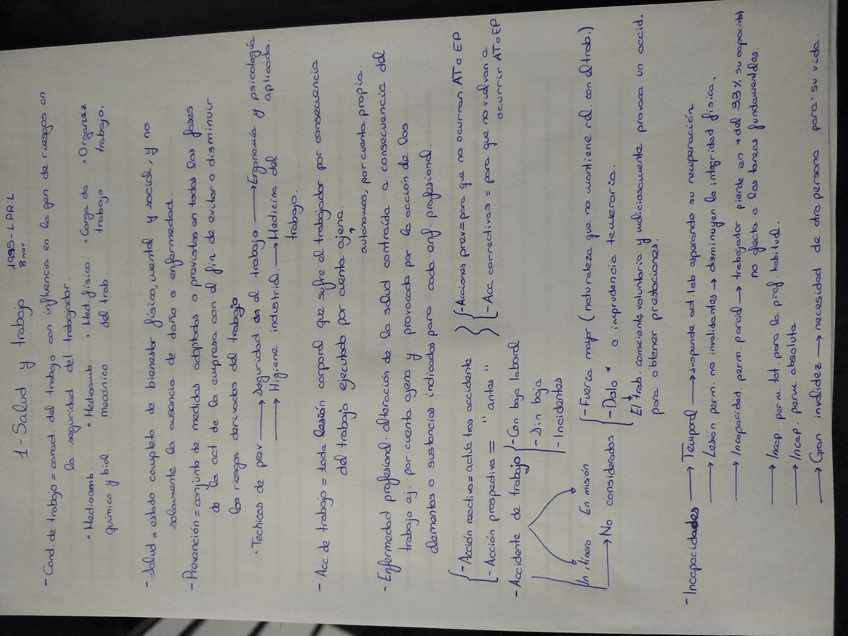 1-Salud y trabajo 1995-LPRL
8 nov
- Cond. de trabajo = caract del trabajo con influencia en la gen de riesgos en
la seguridad del trabajador.
• Medioamb. químico y biol. • Medioamb. mecánico • Med físico del trab. • Carga de trabajo • Organiz trabajo.
- Salud = estado completo de bienestar físico, mental y social, y no
solamente la ausencia de daño o enfermedad.
- Prevención = conjunto de medidas adoptadas o previstas en todas las fases
de la act de la empresa con el fin de evitar o disminuir
los riesgos derivados del trabajo
• Tecnicas de prev → Seguridad en el trabajo → Ergonomía y psicología aplicada.
→ Higiene industrial → Medicina del trabajo.
- Acc de trabajo = toda lesión corporal que sufre el trabajador por consecuencia
del trabajo ejecutado por cuenta ajena.
autónomos, por cuenta propia.
- Enfermedad profesional: alteración de la salud contraída a consecuencia del
trabajo ej. por cuenta ajena y provocada por la acción de los
elementos o sustancias indicados para cada enf. profesional.
- Acción reactiva = actúa tras accidente
- Acción prospectiva = " antes "
- Acciones prev = para que no ocurran AT o EP
- Acc correctivas = para que no vuelvan a
ocurrir AT o EP
- Accidente de trabajo
- Con baja laboral
- Sin baja
- Incidentes
In itinere En misión
→ No considerados
- Fuerza mayor (naturaleza que no mantiene rel. con el trab.)
- Dolo * o imprudencia temeraria.
El trab. consciente, voluntaria y maliciosamente provoca un accid.
para obtener prestaciones.
- Incapacidades → Temporal → suspende act lab esperando su recuperación
→ Lesión perm. no invalidantes → disminuyen la integridad física.
→ Incapacidad, perm. parcial → trabajador pierde en + del 33% su capacidad
no afecta a las tareas fundamentales.
→ Incap. perm. tot para la prof habitual.
→ Incap. perm. absoluta
→ Gran invalidez → necesidad de otra persona para su vida.